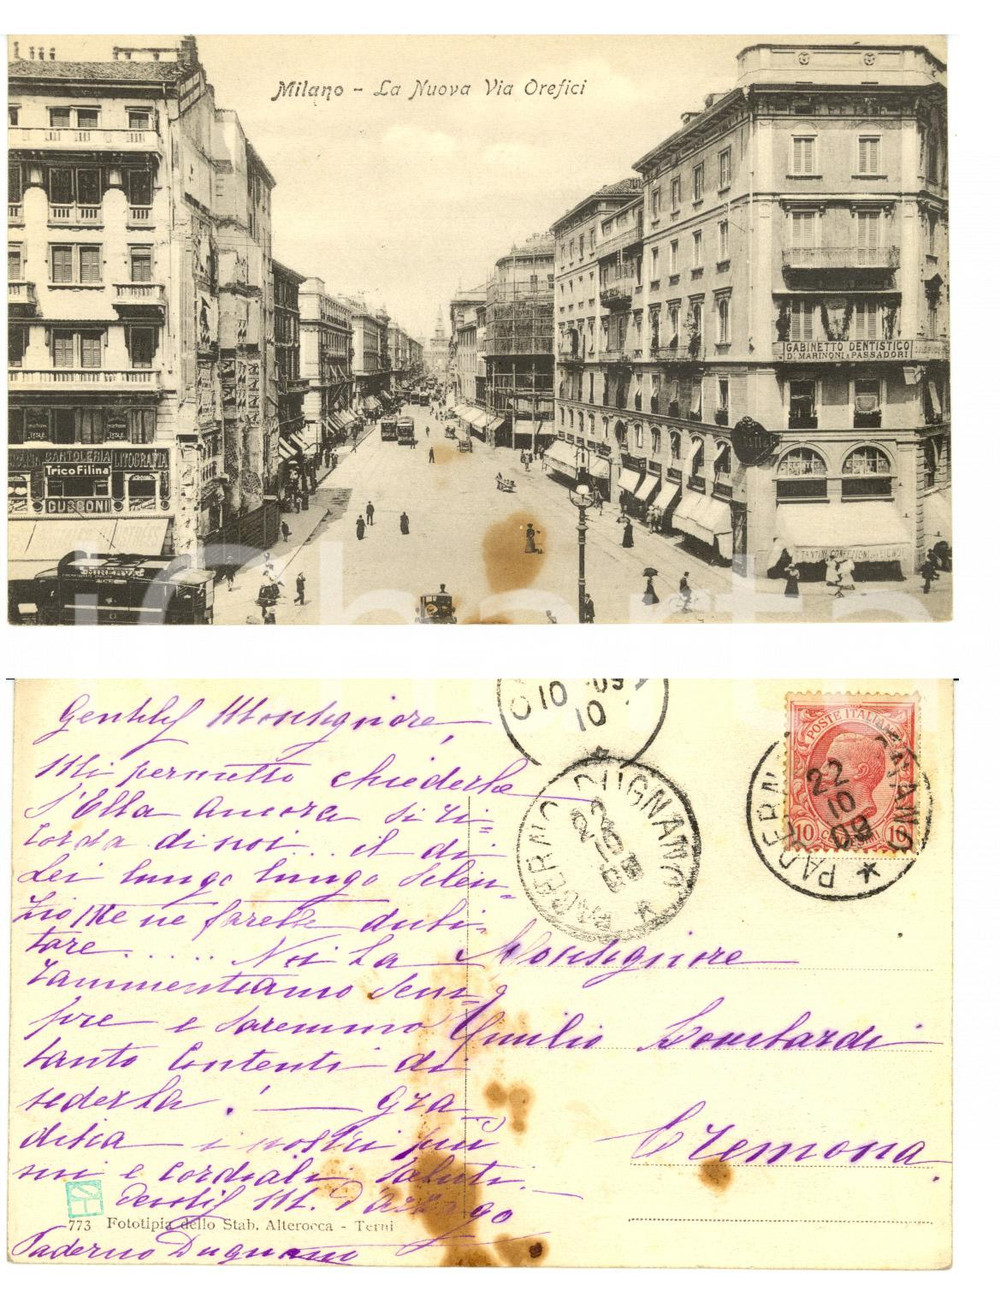 Milano - La Nuova Via Orefici
GABINETTO DENTISTICO
D. MARINONI E PASSADORI
CARTOLERIA
LITOGRAFIA
Trico Filina
GUSSONI
MINERVA
Gentil.º Monsignore,
Mi permetto chiederle
s'Ella ancora si ri-
corda di noi... il di
Lei lungo lungo silen-
zio me ne farebbe dubi-
tare...... Noi La
rammentiamo sem-
pre e saremmo
tanto contenti di
vederla! — Gra-
disca i nostri più
vivi e cordiali saluti. —
Paderno Dugnano
Monsignore
Emilio Lombardi
Cremona.
POSTE ITALIANE
10 CENTESIMI 10
PADERNO DUGNANO
22
10
09
PADERNO DUGNANO
22
10
09
10 09
10
773 Fototipia dello Stab. Alterocca - Terni